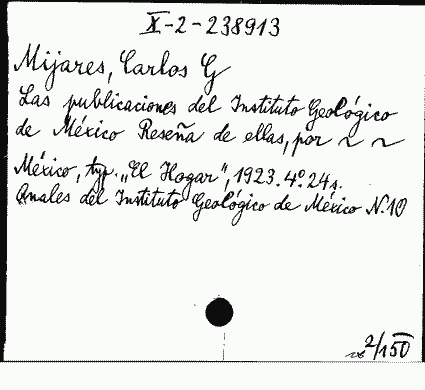 X-2-238913
Mijares, Carlos G
Las publicaciones del Instituto Geológico
de México Reseña de ellas, por ~ ~
México, typ. „El Hogar", 1923. 4º. 24 s.
Anales del Instituto Geológico de México N. 10
2/150